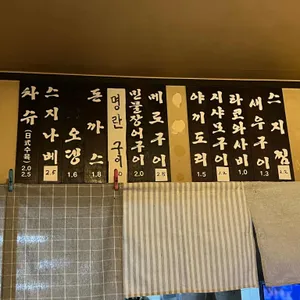 차슈 (日式수육) 2.0 2.5
스지나베 2.5
오뎅 1.6
돈까스 1.8
명란구이
민물장어구이 2.0
메로구이
야끼도리 1.5
시샤모구이
타코와사비 1.0
새우구이 1.3
스지찜